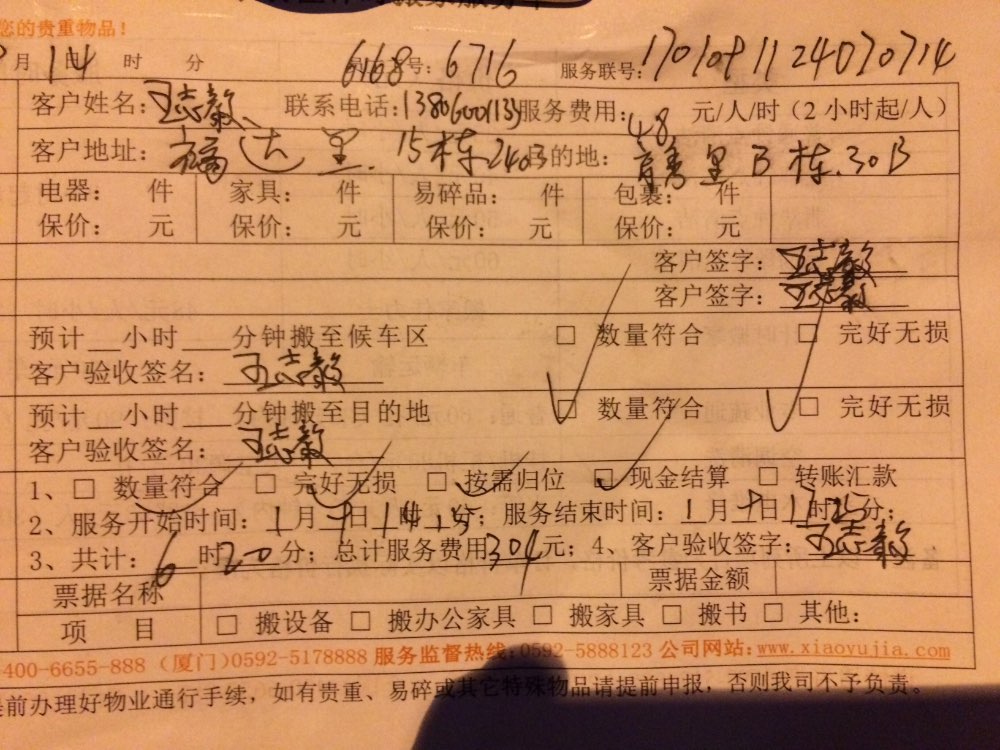 您的贵重物品！
月14日 时 分 6168号：6716 服务联号：1701091124070714
客户姓名：王志毅 联系电话：服务费用：48 元/人/时（2小时起/人）
客户地址：福达里 15栋240B 目的地：育秀里B栋30B
电器： 件 家具： 件 易碎品： 件 包裹： 件
保价： 元 保价： 元 保价： 元 保价： 元
客户签字：王志毅
客户签字：王志毅
预计__小时___分钟搬至候车区 □ 数量符合 □ 完好无损
客户验收签名：王志毅
预计__小时___分钟搬至目的地 □ 数量符合 □ 完好无损
客户验收签名：王志毅
1、□ 数量符合 □ 完好无损 □ 按需归位 □ 现金结算 □ 转账汇款
2、服务开始时间：1月9日1时分；服务结束时间：1月9日1时分；
3、共计：6时20分；总计服务费用304元；4、客户验收签字：王志毅
票据名称 票据金额
项 目 □ 搬设备 □ 搬办公家具 □ 搬家具 □ 搬书 □ 其他：
400-6655-888（厦门）0592-5178888 服务监督热线：0592-5888123 公司网站：www.xiaoyujia.com
前办理好物业通行手续，如有贵重、易碎或其它特殊物品请提前申报，否则我司不予负责。